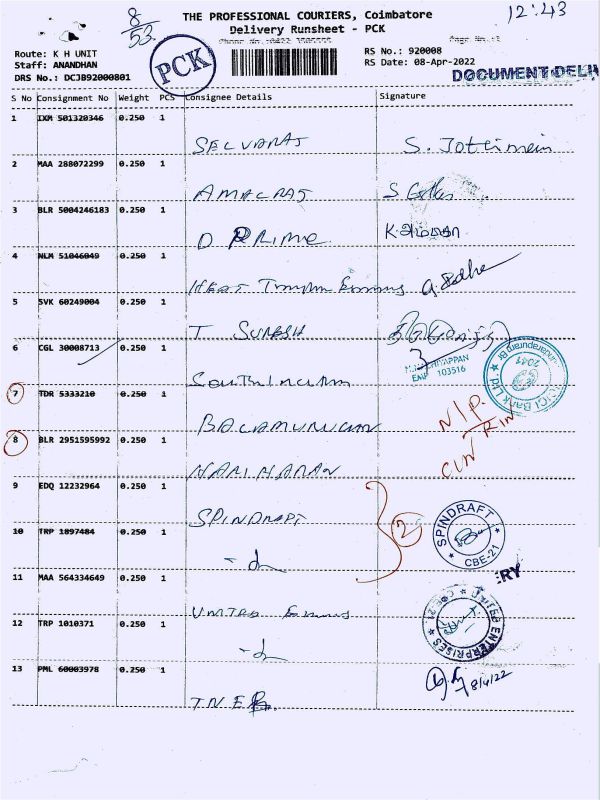 8
53
THE PROFESSIONAL COURIERS, Coimbatore
12:43
Delivery Runsheet - PCK
Route: K H UNIT
Staff: ANANDHAN
DRS No.: DCJB92000801
PCK
RS No.: 920008
RS Date: 08-Apr-2022
DOCUMENT DELIV
S No Consignment No Weight PCS Consignee Details Signature
1 IXM 501320346 0.250 1
SELVARAJ S.
2 MAA 288072299 0.250 1
AMALRAJ S
3 BLR 5004246183 0.250 1
D PRIME K.
4 NLM 51046049 0.250 1
HEAT
5 SVK 60249004 0.250 1
T SURESH
6 CGL 30008713 0.250 1
EMP 103516
ICICI Bank Ltd
2041
7 TDR 5333210 0.250 1
BALAMURUGAN
N/P.
8 BLR 2951595992 0.250 1
HARIHARAN
9 EDQ 12232964 0.250 1
SPINDRAFT
2
SPINDRAFT
CBE-21
10 TRP 1897484 0.250 1
RY
11 MAA 564334649 0.250 1
UNITED
UNITED ENTERPRISES
CBE-21
12 TRP 1010371 0.250 1
13 PML 60003978 0.250 1
8/4/22
T.N.E.B.